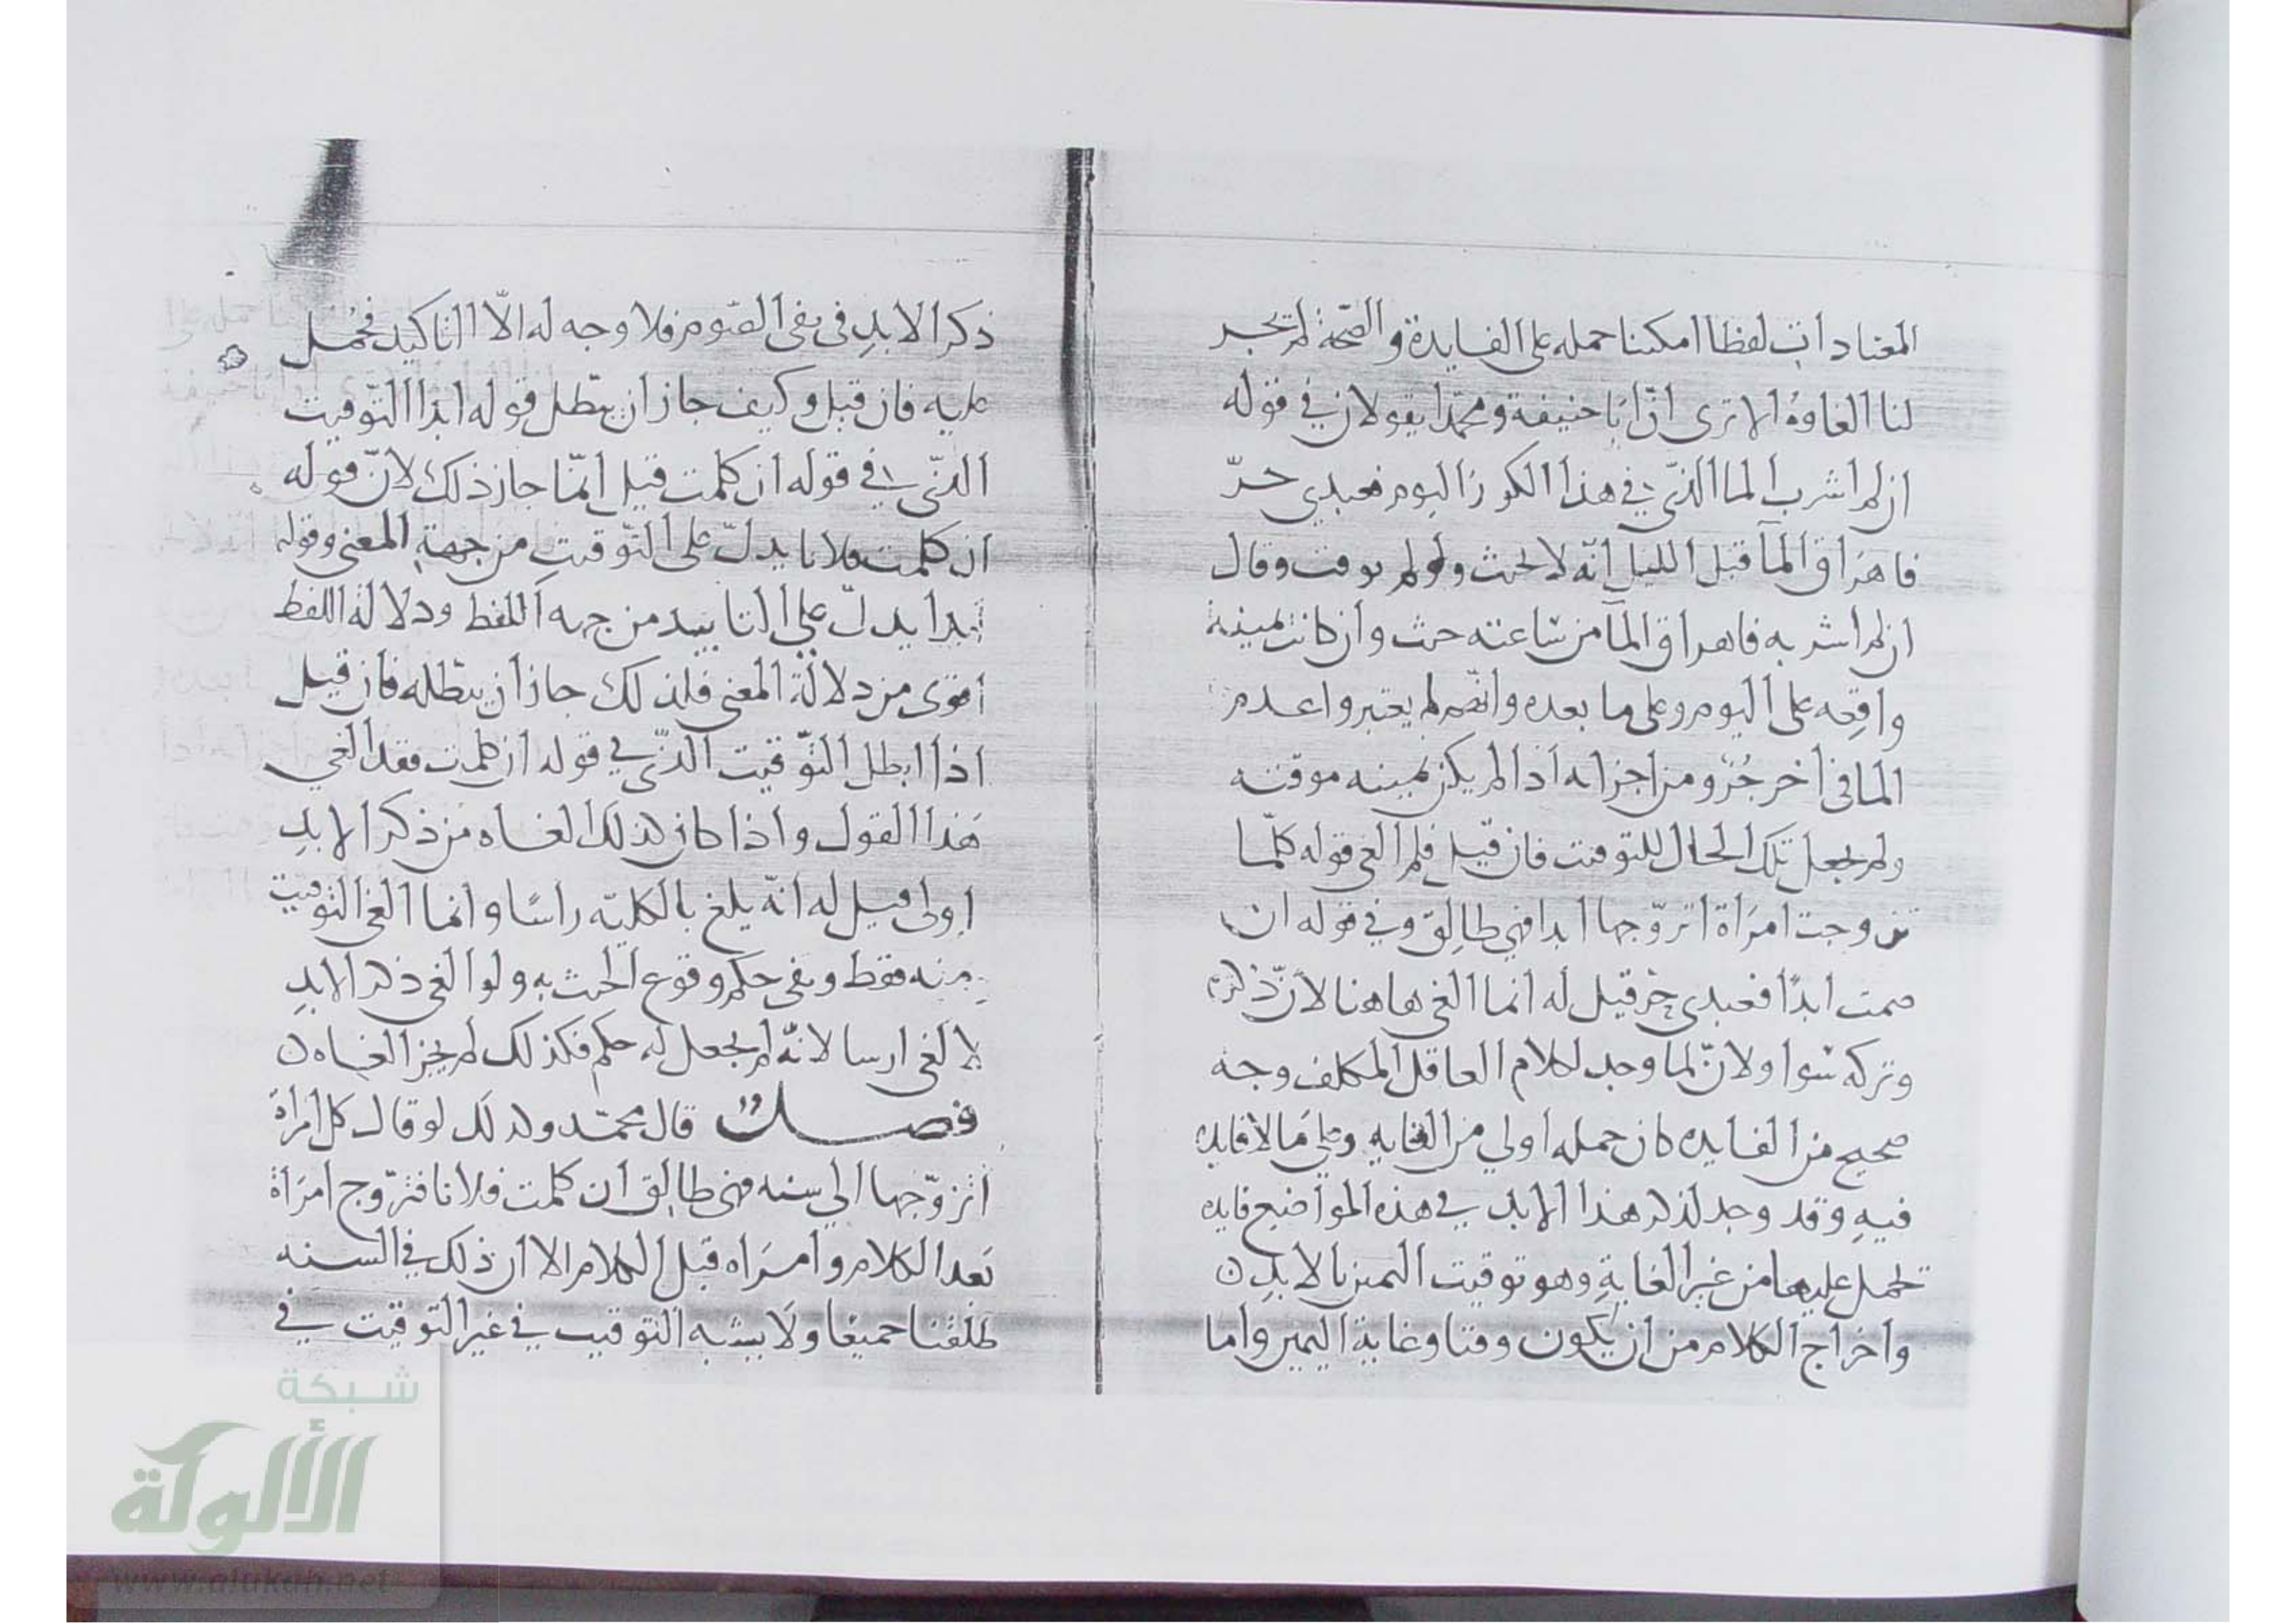 المعنا دات لفظا امكننا حمله على الفايدة والصّحة لم يجز
لنا الغاوهُ الا ترى انّ ابا حنيفة ومحمّدا يقولان في قوله
ان لم اشرب الما الذّي في هذا الكوز اليوم فعبدي حرّ
فاهراق المآ قبل الليل انّه لا يحنث ولو لم يوقت وقال
ان لم اشربه فاهراق المآ من ساعته حنث وان كانت يمينه
واقعه على اليوم وعلى ما بعده وانهّم لم يعتبروا عدم
الما في اخر جُزو من اجزايه اذا لم يكن يمينه موقته
ولم يجعل تلك الحال للتوقيت فان قيل فلم الغى قوله كلّما
تزوجت امرَاة اتزوّجها ابدا فهي طالِق وفي قوله ان
صمت ابدًا فعبدي حرّ قيل له انما الغى هاهنا لانّ ذكره
وتركه سوا ولانّ لما وجد لكلام العاقل المكلف وجه
صحيح من الفايده كان حمله أولي من الغايه وعلى مَا لا فايده
فيهِ وقد وجد لذكر هذا الابد في هذه المواضيع فايده
تحمل عليها من غير الغايةِ وهو توقيت اليمين بالابدِ ن
واخراج الكلام من ان يكون وقتا وغاية اليمين واما
ذكر الابدِ في نفى الصّوم فلا وجه له الاّ التاكيد فحُمل
عليه فان قيل وكيف جاز ان يبّطل قوله ابدًا التّوقيت
الذّي في قوله ان كلمت قيل انّما جاز ذلك لانّ قوله
ان كلمت فلانا يدلّ على التّوقيت من جهةِ المعنى وقوله
ابدا يدلّ على التابييد من جهه اللفظ ودلالة اللفظ
اقوى من دلالة المعنى فلذلك جاز ان يبّطله فان قيل
اذا ابطل التّوقيت الذّي في قوله ان كلمت فقد الغي
هَذا القول واذا كان كذلك الغاه من ذكر الابدِ
اولى قيل له انّه يلغ بالكليّه راسًا وانما الغى التوقيت
منه فقط وبقى حكم وقوع الحنث به ولو الغى ذكر الابدِ
لا لغى ارسا لانّه لم يجعل له حكم فكذلك لم يجز الغاه ن
فصــل قال محمّد ولذلك لو قال كل امراة
اتزوّجها الي سنه فهي طالق ان كلمت فلانا فتزوّج امرَاة
بَعد الكلام وامرَاه قبل الكلام الا ان ذلك في السنه
طلقتا جميعا ولا يشبه التوقيت في غير التوقيت في
شبكة
الألوكة
www.alukah.net